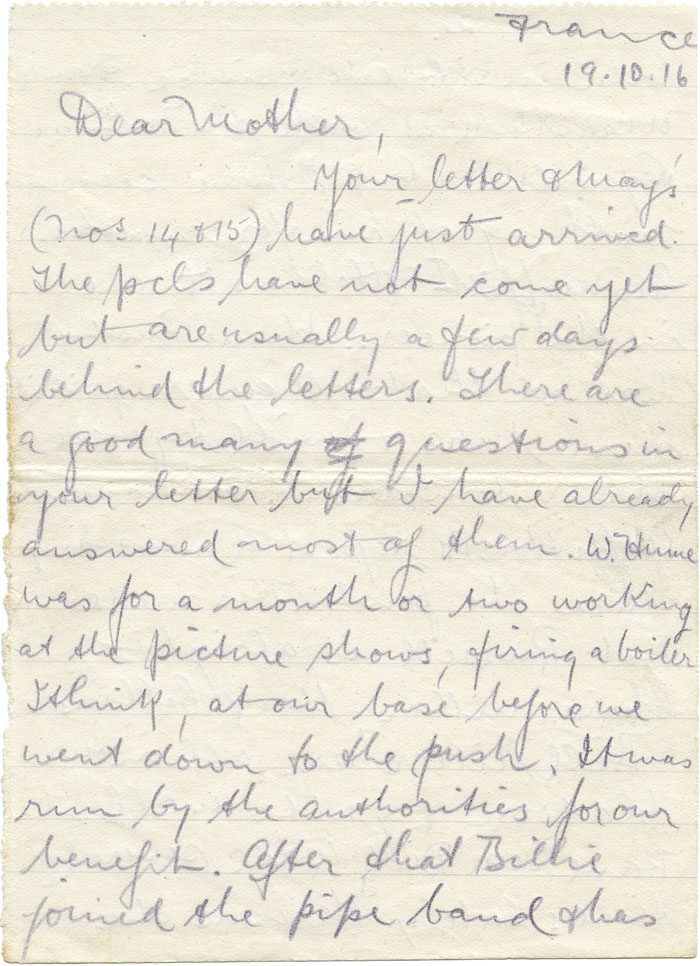 France
19.10.16
Dear Mother,
Your letter & May's
(Nos 14 & 15) have just arrived.
The pcls have not come yet
but are usually a few days
behind the letters. There are
a good many of questions in
your letter but I have already
answered most of them. W. Hume
was for a month or two working
at the picture shows, firing a boiler
I think, at our base before we
went down to the push. It was
run by the authorities for our
benefit. After that Billie
joined the pipe band & has